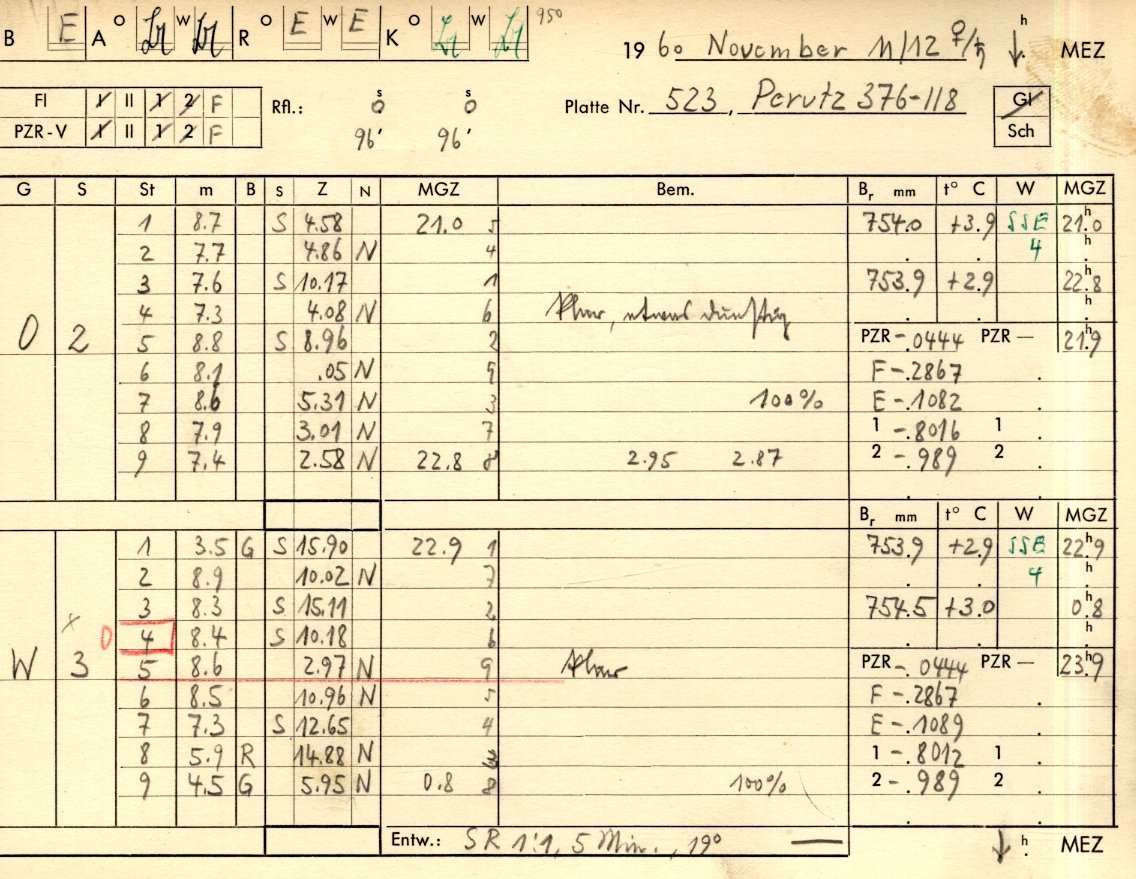 B E A o W R o E W E K o W 950
19 60 November 11/12 ♀/♄ h MEZ
FI I II 1 2 F Rfl.: s s Platte Nr. 523, Perutz 376-118 Gl
PZR-V I II 1 2 F 96' 96' Sch
G S St m B S Z N MGZ Bem. Br mm t° C W MGZ
1 8.7 S 4.58 21.0 5 754.0 +3.9 SSE 21.0 h
2 7.7 4.86 N 4 4 h
3 7.6 S 10.17 1 753.9 +2.9 22.8 h
4 7.3 4.08 N 6 klar, etwas dunstig h
O 2 5 8.8 S 8.96 2 PZR -.0444 PZR — 21.9 h
6 8.1 .05 N 9 F -.2867
7 8.6 5.31 N 3 100% E -.1082
8 7.9 3.01 N 7 1 -.8016 1
9 7.4 2.58 N 22.8 8 2.95 2.87 2 -.989 2
Br mm t° C W MGZ
1 3.5 G S 15.90 22.9 1 753.9 +2.9 SSE 22.9 h
2 8.9 10.02 N 7 4 h
3 8.3 S 15.11 2 754.5 +3.0 0.8 h
x 0 4 8.4 S 10.18 6 h
W 3 5 8.6 2.97 N 9 klar PZR -.0444 PZR — 23.9 h
6 8.5 10.96 N 5 F -.2867
7 7.3 S 12.65 4 E -.1089
8 5.9 R 14.88 N 3 1 -.8012 1
9 4.5 G 5.95 N 0.8 8 100% 2 -.989 2
Entw.: SR 1:1, 5 Min., 19° — h MEZ